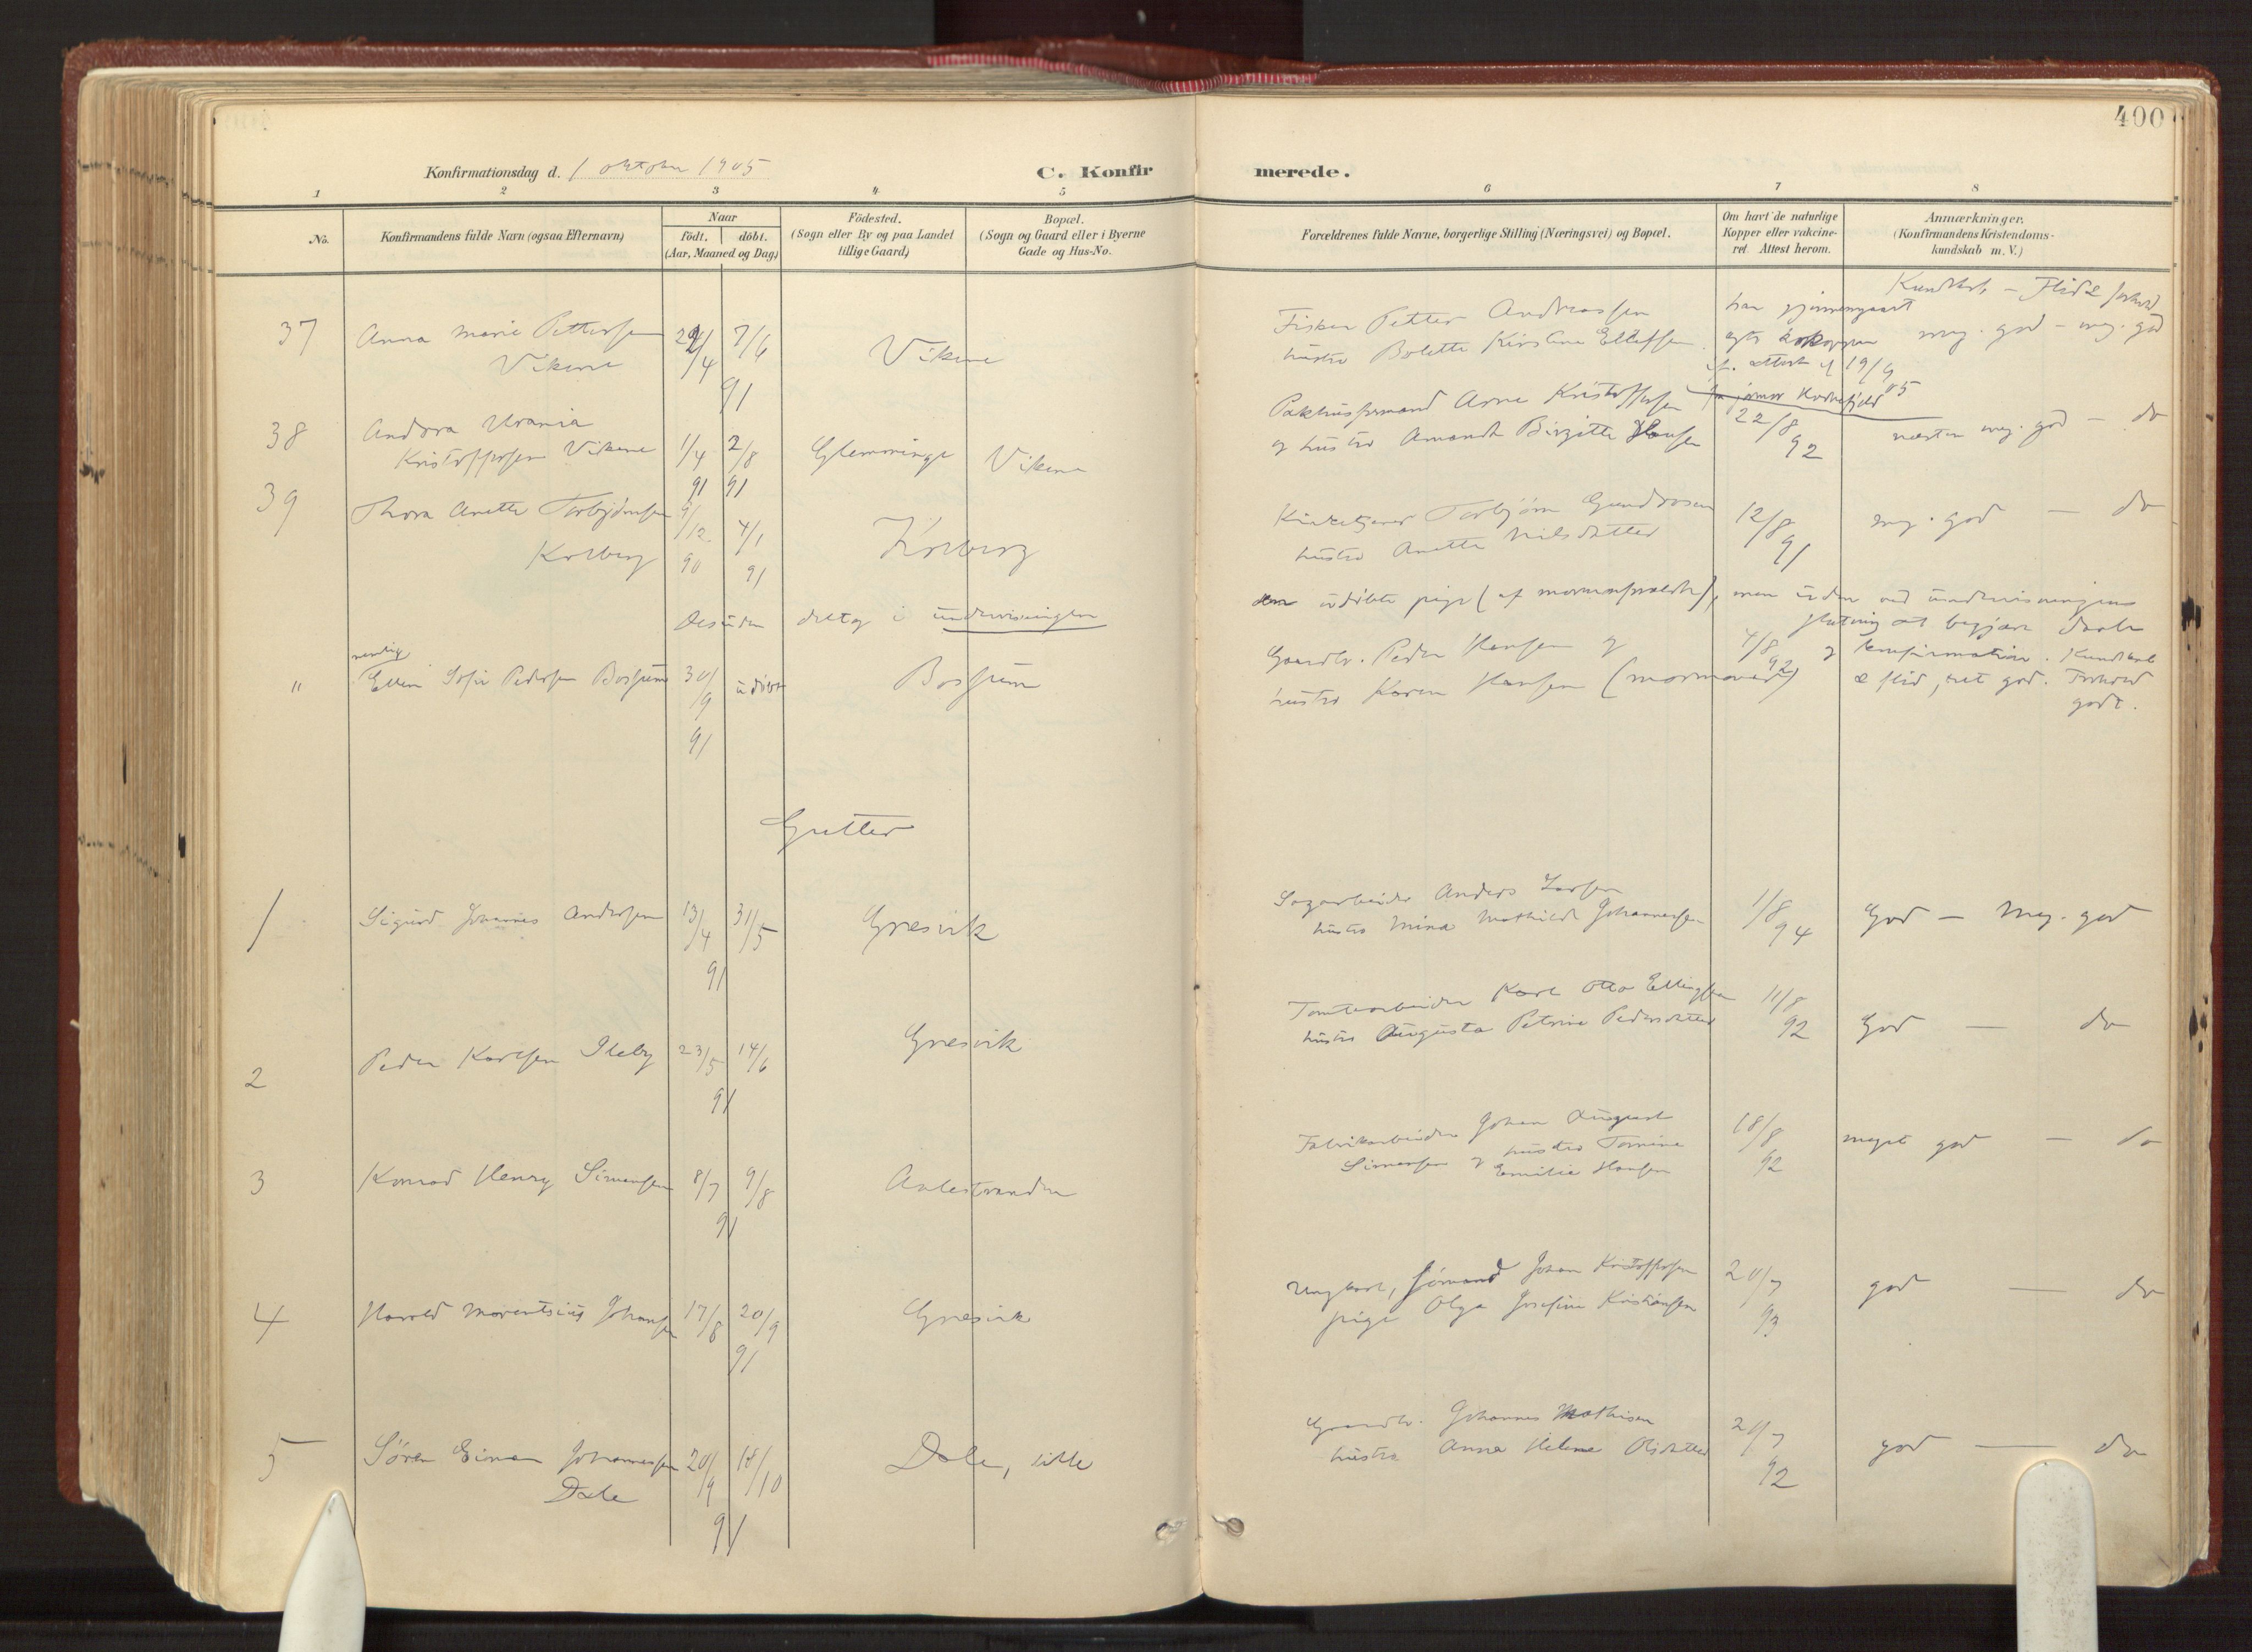 400
Konfirmationsdag d. 1 oktober 1905
C. Konfir merede.
1 2 3 4 5 6 7 8
No.
Konfirmandens fulde Navn (ogsaa Efternavn)
Naar
født. døbt.
(Aar, Maaned og Dag)
Födested.
(Sogn eller By og paa Landet
tillige Gaard)
Bopæl.
(Sogn og Gaard eller i Byerne
Gade og Hus-No.
Forældrenes fulde Navne, borgerlige Stilling (Næringsvei) og Bopæl.
Om havt de naturlige
Kopper eller vakcine-
ret. Attest herom.
Anmærkninger.
(Konfirmandens Kristendoms-
kundskab m. V.)
Kundskab - Flid & forhold
37 Anna Marie Pettersen
Vikene
7/6
91
Vikene
Fisker Petter Andreassen
hustru Bolette Kirstine Ellefsen
har gjennemgaaet
ægte kokopper
if. attest af 19/9
05
meg. god - meg. god
38 Andora Urania
Kristoffersen Vikene
1/4 91
2/8 91
Glemminge
Vikene
Pakhusformand Arne Kristoffersen
og hustru Amanda Birgitte Hansen
22/8 92
næsten meg. god - do
39 Thora Anette Torbjørnsen
Kolberg
9/12 90
4/1 91
Kirketjener Torbjørn Gundersen
hustru Anette Nilsdatter
12/8 91
meg. god - do
Desuden deltog i undervisningen
den udøbte pige (af mormonforældre), men uden ved undervisningens
slutning at begjære daab
og konfirmation. Kundskab
& flid, ret god. Forhold
godt.
" nemlig
Ellen Sofie Pedersen Bossum
30/9 91
udøbt
Bossum
Gaardbr. Peder Hansen og
hustru Karen Hansen (mormoner)
4/8 92
Gutter
1 Sigurd Johannes Andersen
13/4 31/5
91
Gresvik
Sagarbeider Anders Larsen
hustru Mina Mathilde Johannessen
1/8 94
God - Meg. god
2 Peder Karlsen Ileby
23/5 14/6
91
Gresvik
Tomtearbeider Karl Otto Ellingsen
hustru Augusta Petrine Pedersdatter
11/8 92
God - do
3 Konrad Henry Simensen
8/7 9/8
91
Aalestranden
Fabrikarbeider Johan August
Simensen og hustru Tomine
Emilie Hansen
18/8 92
meget god - do
4 Harald Morentsius Johansen
17/8 20/9
91
Gresvik
Ungkarl, sjømand Johan Kristoffersen
pige Olga Josefine Kristiansen
20/7 93
god - do
5 Søren Einar Johannessen
Dale
20/9 18/10
91
Dale, lille
Gaardbr. Johannes Mathisen
hustru Anna Helene Olsdatter
20/7 92
god - do